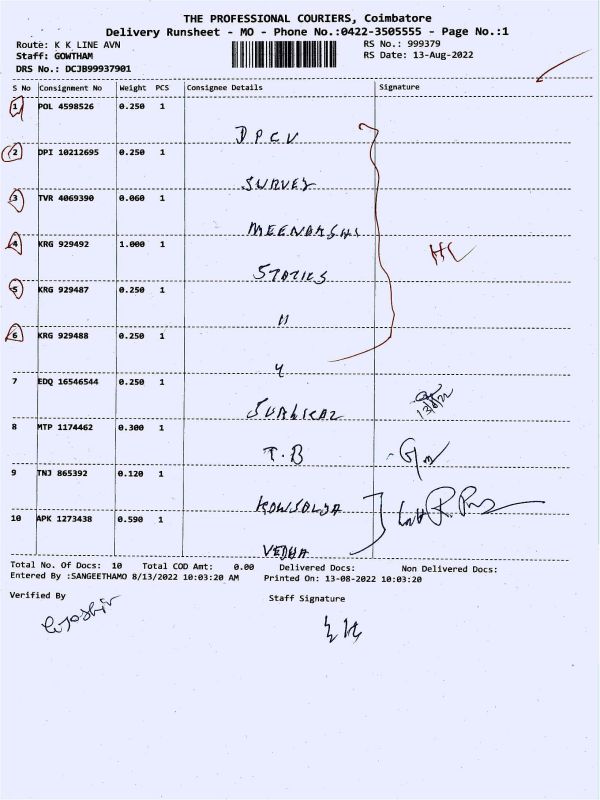 THE PROFESSIONAL COURIERS, Coimbatore
Delivery Runsheet - MO - Phone No.:0422-3505555 - Page No.:1
Route: K K LINE AVN
RS No.: 999379
Staff: GOWTHAM
RS Date: 13-Aug-2022
DRS No.: DCJB99937901
S No Consignment No Weight PCS Consignee Details Signature
1 POL 4598526 0.250 1
DPCV
2 DPI 10212695 0.250 1
SURVEY
3 TVR 4069390 0.060 1
MEENDKSHI
4 KRG 929492 1.000 1
STATICS
5 KRG 929487 0.250 1
11
6 KRG 929488 0.250 1
7 EDQ 16546544 0.250 1
SURGICAL
8 MTP 1174462 0.300 1
T.B
9 TNJ 865392 0.120 1
KOWSALYA
10 APK 1273438 0.590 1
VEDHA
Total No. Of Docs: 10 Total COD Amt: 0.00 Delivered Docs: Non Delivered Docs:
Entered By :SANGEETHAMO 8/13/2022 10:03:20 AM Printed On: 13-08-2022 10:03:20
Verified By Staff Signature